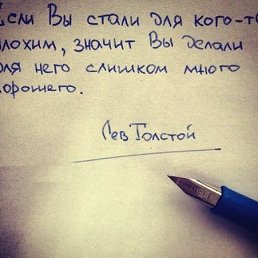 Если Вы стали для кого-т
плохим, значит Вы делали
для него слишком много
хорошего.
Лев Толстой